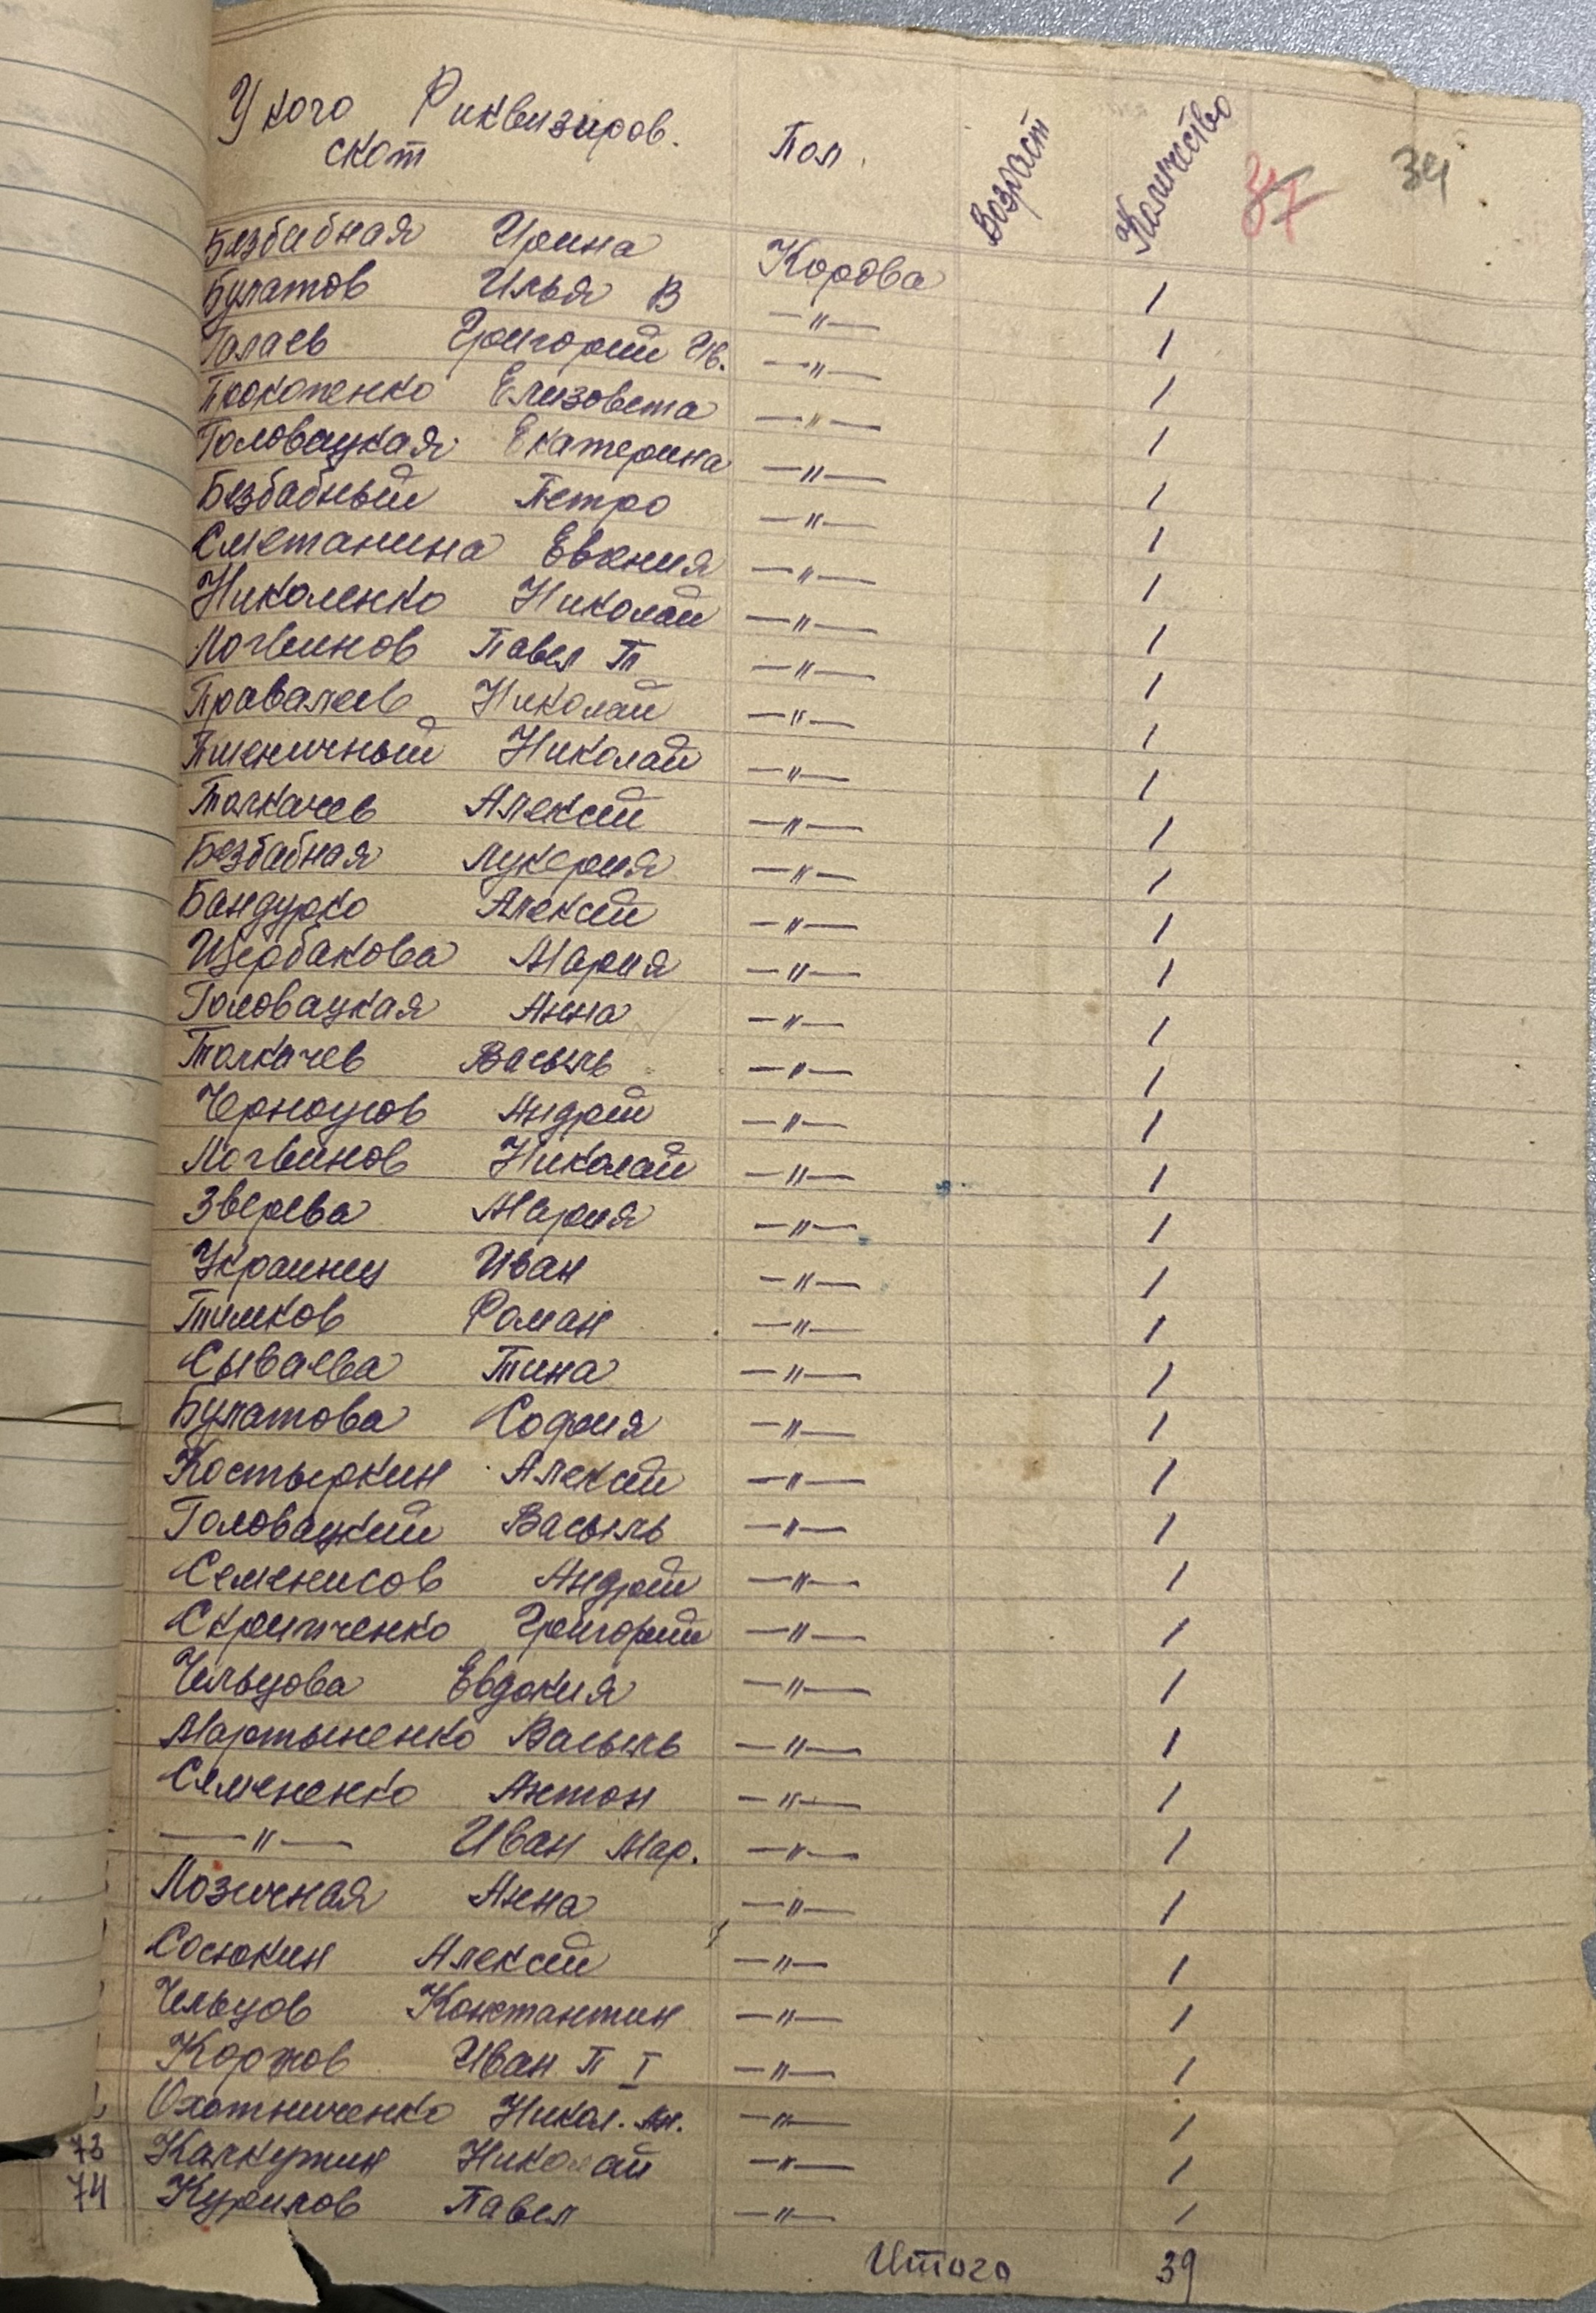 У кого Риквизиров. Пол. Возраст Количество 37 34
скот
Безбабная Ирина Корова 1
Булатов Илья В —"— 1
Галаев Григорий Ив. —"— 1
Прокопенко Елизовета —"— 1
Головацкая Екатерина —"— 1
Безбабный Петро —"— 1
Сметанина Евгения —"— 1
Николенко Николай —"— 1
Логвинов Павел П —"— 1
Правалеев Николай —"— 1
Пшеничный Николай —"— 1
Толкачев Алексей —"— 1
Безбабная Лукерия —"— 1
Бандурко Алексей —"— 1
Щербакова Мария —"— 1
Головацкая Анна —"— 1
Толкачев Васыль —"— 1
Черноусов Андрей —"— 1
Логвинов Николай —"— 1
Зверева Мария —"— 1
Украинец Иван —"— 1
Тимков Роман —"— 1
Сываева Тина —"— 1
Булатова София —"— 1
Костыркин Алексей —"— 1
Головацкий Васыль —"— 1
Семенисов Андрей —"— 1
Скрипченко Григорий —"— 1
Чельцова Евдокия —"— 1
Мартыненко Васыль —"— 1
Семененко Антон —"— 1
—"— Иван Мар. —"— 1
Лозичная Анна —"— 1
Сосюкин Алексей —"— 1
Чельцов Константин —"— 1
Коржов Иван П I —"— 1
Охотниченко Никол. Ан. —"— 1
73 Калкутин Николай —"— 1
74 Курилов Павел —"— 1
Итого 39